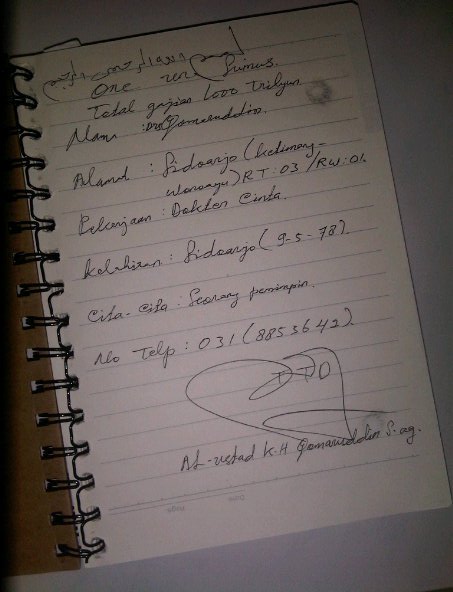 One
Total gajian 1000 Trilyun
Nama : Qomaruddin.
Alamat : Sidoarjo (ketimang-
wonoayu) RT : 03 / RW : 01
Pekerjaan : Dokter Cinta.
Kelahiran : Sidoarjo (9-5-78).
Cita-Cita : Seorang pemimpin.
No Telp : 031 (8853642)
TTD
Al-ustad K.H Qomaruddin S.ag.